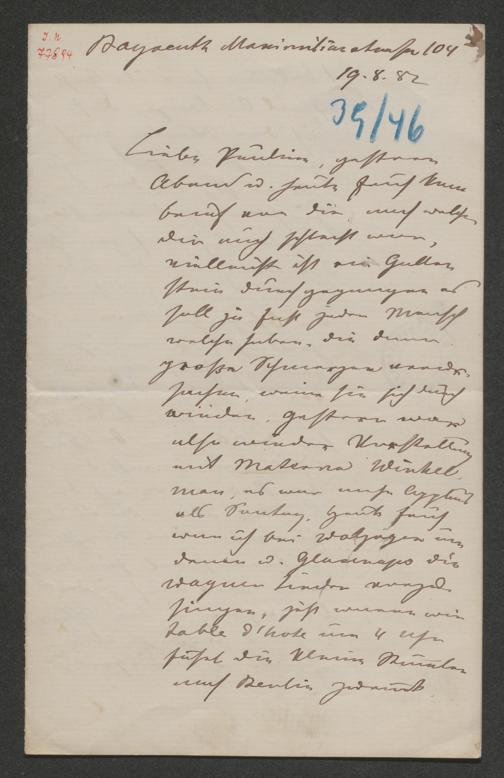 J. N
77894
Bayreuth Maximilianstrasse 104
19.8.82
39/46
Liebe Pauline, gestern
Abend u. heute früh kam
brief von dir, nach welchen
dir auch schlecht war,
vielleicht ist ein Gallen
stein durchgegangen es
soll ja fast jeder Mensch
welche haben, die dann
große Schmerzen verur-
sachen, wenn sie sich durch
winden. Gestern war
also wieder Vorstellung
mit Materna Winkel
man, es war mehr
als Sontag. Heute früh
war ich bei Wolzogen um
denen u. die
Wagner Lieder vorzu
singen, jetzt waren wir
table d'hote um 4 Uhr
fährt die kleine
nach Berlin zurück